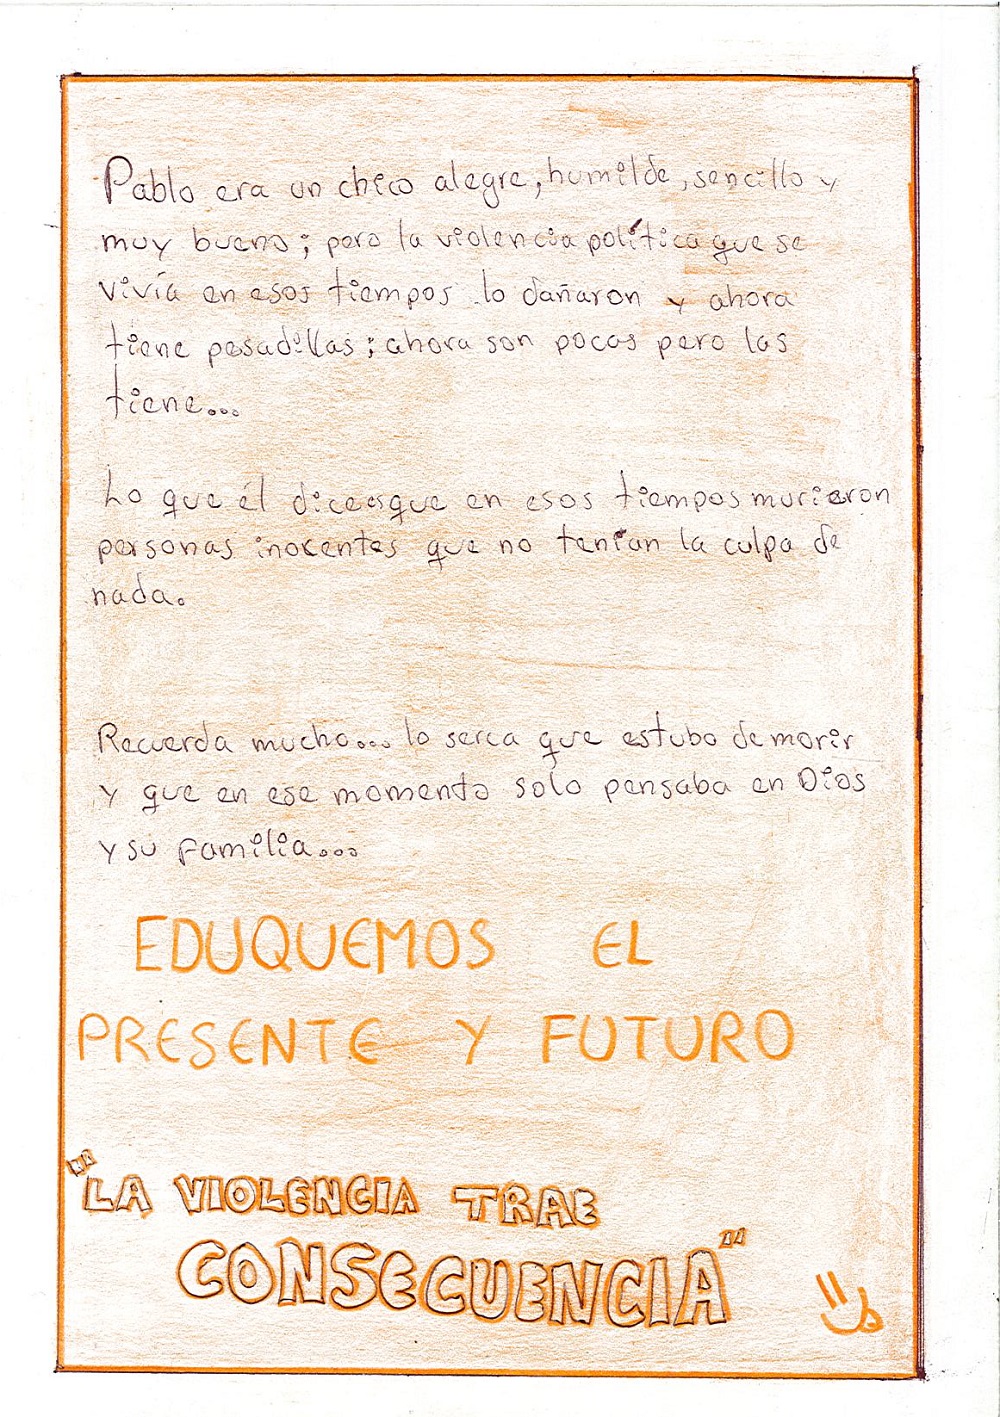 Pablo era un chico alegre, humilde, sencillo y
muy bueno; pero la violencia política que se
vivía en esos tiempos lo dañaron y ahora
tiene pesadillas; ahora son pocas pero las
tiene...
Lo que él dice es que en esos tiempos murieron
personas inocentes que no tenían la culpa de
nada.
Recuerda mucho... lo serca que estubo de morir
y que en ese momento solo pensaba en Dios
y su familia...
EDUQUEMOS EL
PRESENTE Y FUTURO
"LA VIOLENCIA TRAE
CONSECUENCIA"